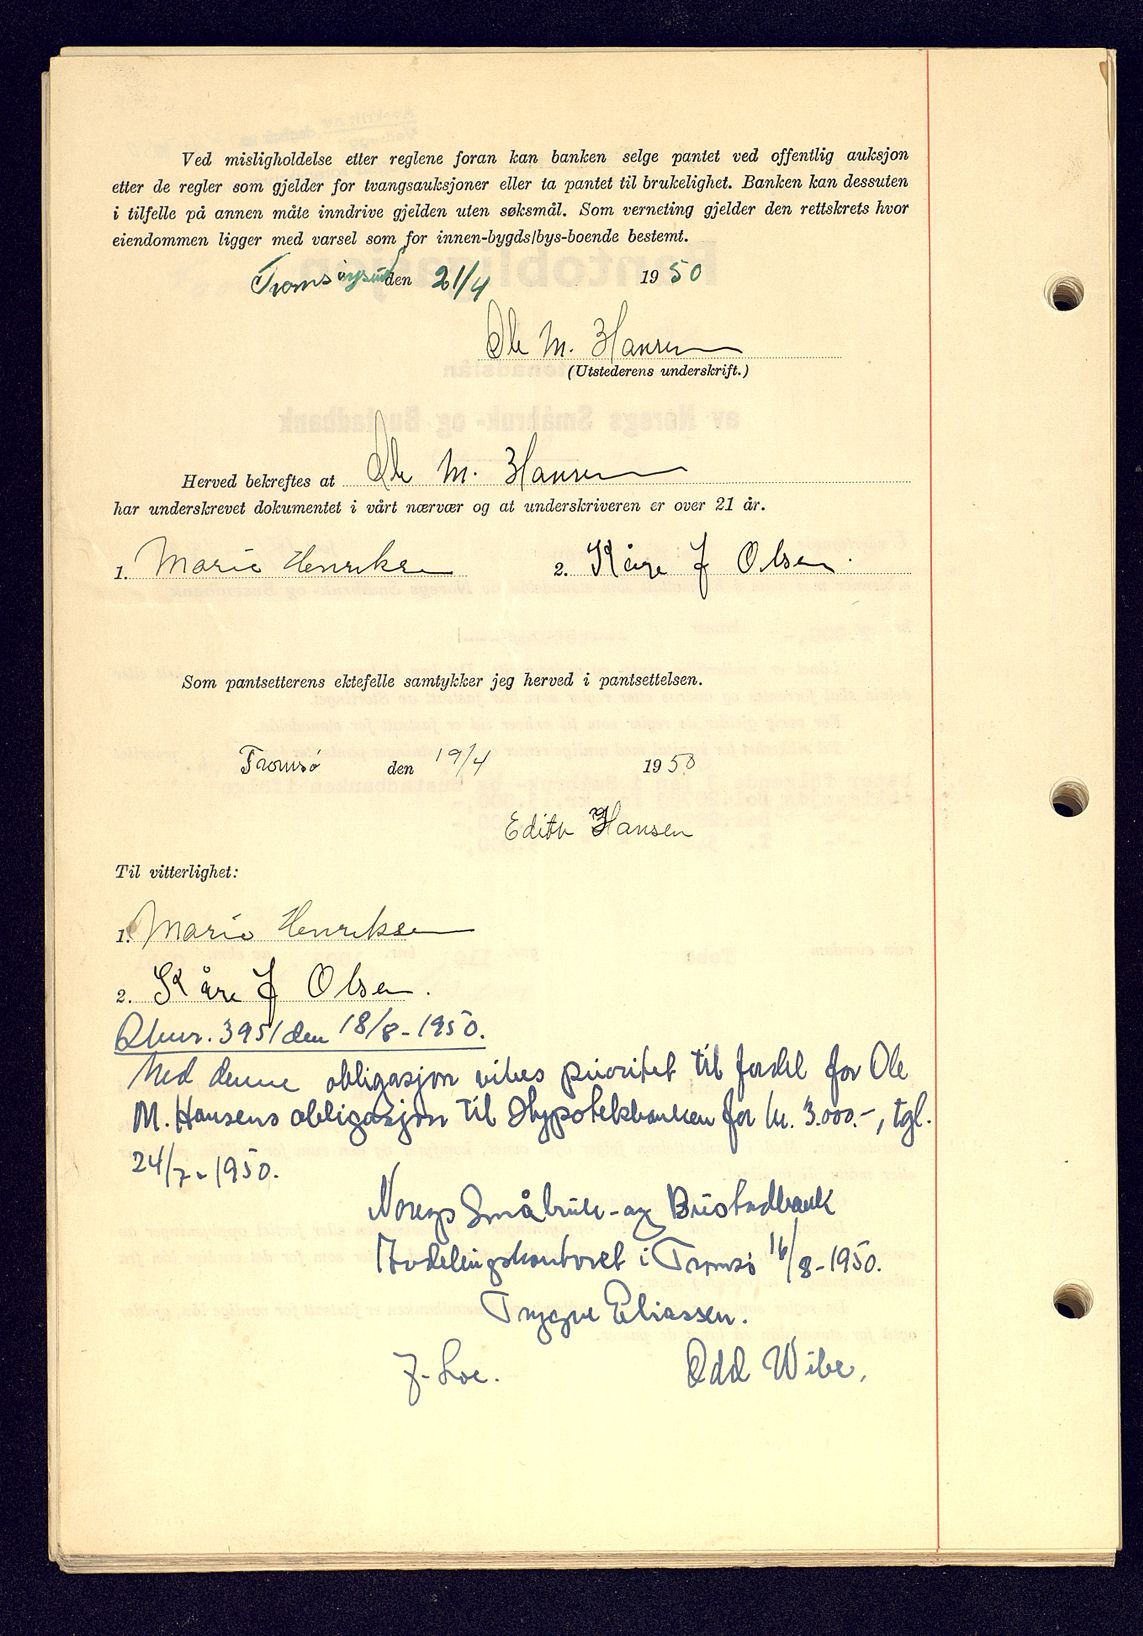 Ved misligholdelse etter reglene foran kan banken selge pantet ved offentlig auksjon
etter de regler som gjelder for tvangsauksjoner eller ta pantet til brukelighet. Banken kan dessuten
i tilfelle på annen måte inndrive gjelden uten søksmål. Som verneting gjelder den rettskrets hvor
eiendommen ligger med varsel som for innen-bygds/bys-boende bestemt.
Tromsøysund den 21/4 1950
Ole M. Hansen
(Utstederens underskrift.)
Herved bekreftes at Ole M. Hansen
har underskrevet dokumentet i vårt nærvær og at underskriveren er over 21 år.
1. Marie Henriksen 2. Kåre J Olsen.
Som pantsetterens ektefelle samtykker jeg herved i pantsettelsen.
Tromsø den 19/4 1950
Edith Hansen
Til vitterlighet:
1. Marie Henriksen
2. Kåre J Olsen.
3951 den 18/8-1950.
Med denne obligasjon vikes prioritet til fordel for Ole
M. Hansens obligasjon til Hypotekbanken for kr. 3.000.-, tgl.
24/7-1950.
Noregs Småbruk- og Bustadbank
Avdelingskontoret i Tromsø 16/8-1950.
Trygve Eliassen.
J. Loe. Odd Wibe.